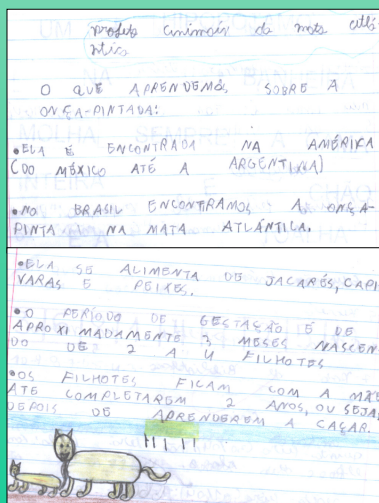 projeto animais da mata atlâ
ntica
O QUE APRENDEMOS SOBRE A
ONÇA-PINTADA:
•ELA É ENCONTRADA NA AMÉRICA
(DO MÉXICO ATÉ A ARGENTINA)
•NO BRASIL ENCONTRAMOS A ONÇA-
PINTA NA MATA ATLÂNTICA.
•ELA SE ALIMENTA DE JACARÉS, CAPI
VARAS E PEIXES.
•O PERÍODO DE GESTAÇÃO É DE
APROXIMADAMENTE 3 MESES NASCEN
DO DE 2 A 4 FILHOTES
•OS FILHOTES FICAM COM A MÃE
ATÉ COMPLETAREM 2 ANOS, OU SEJA,
DEPOIS DE APRENDEREM A CAÇAR.